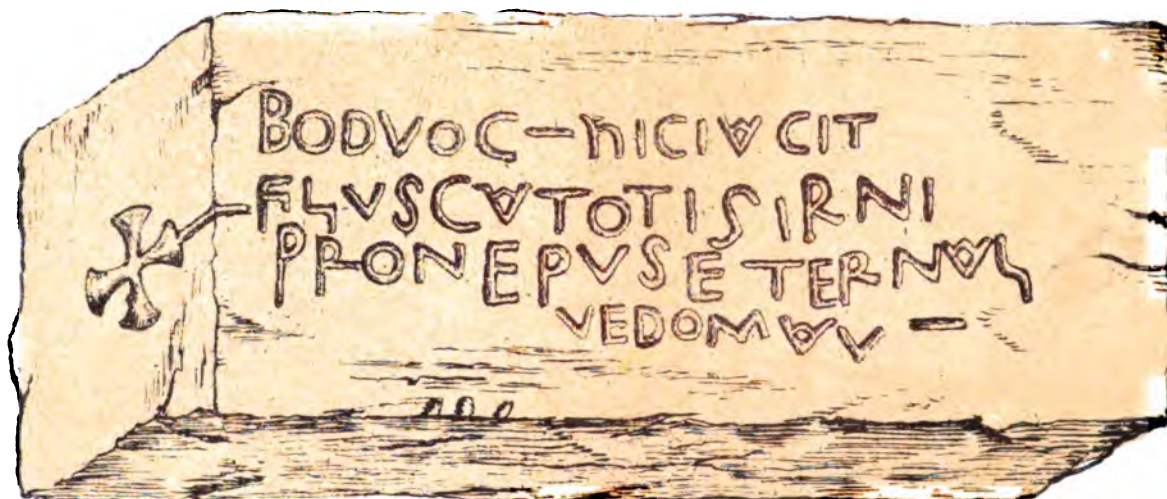 BODVOC—hICIACIT
FLVSCATOTISIRNI
PRONEPVSETERNAL
VEDOMAV —